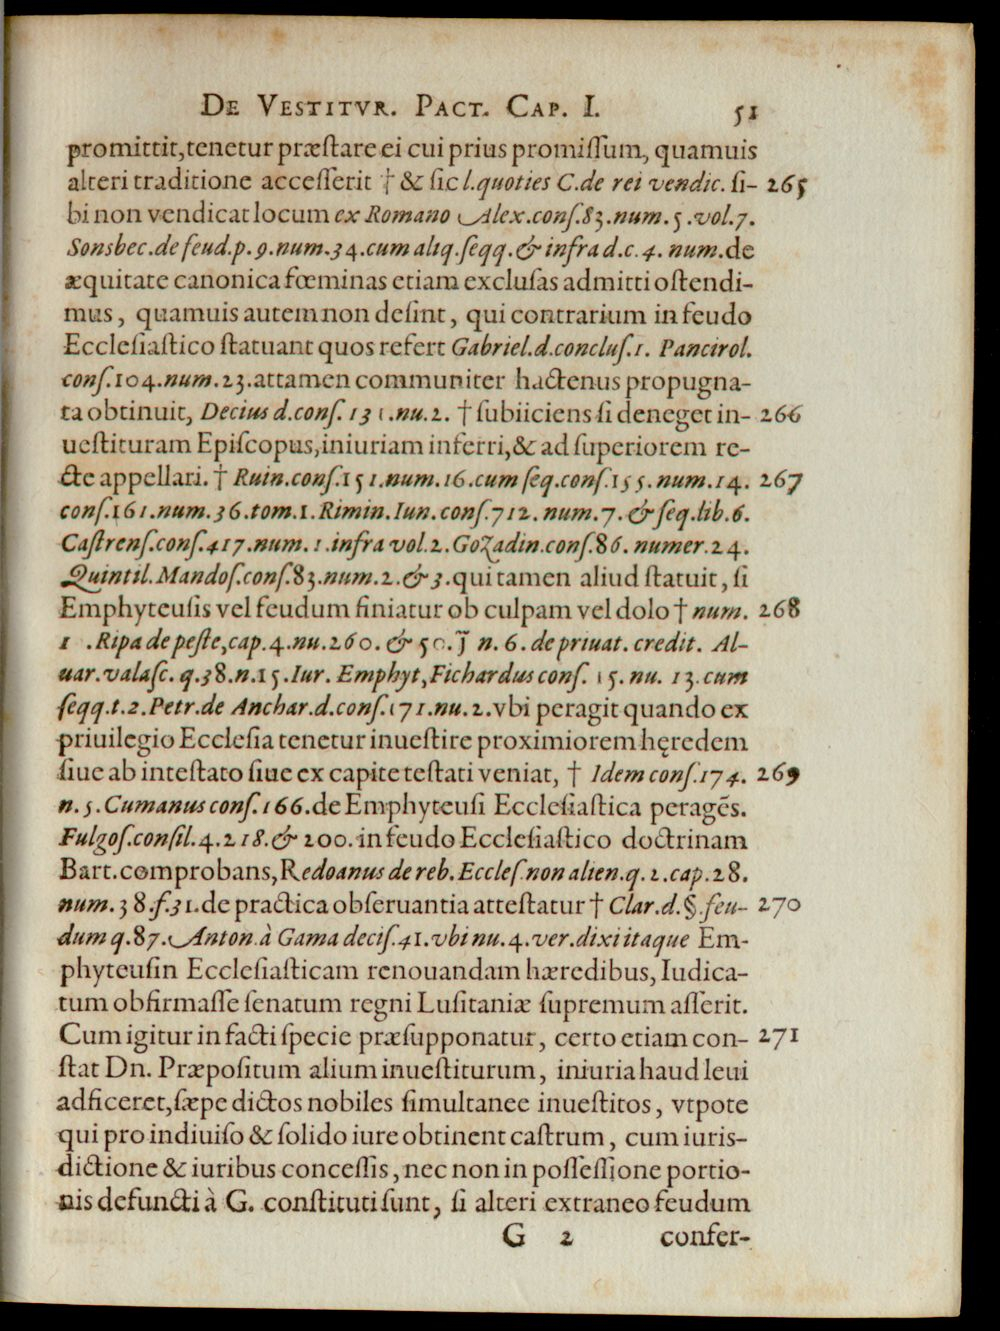 De Vestitvr. Pact. Cap. I. 51
promittit, tenetur præſtare ei cui prius promiſſum, quamuis
alteri traditione acceſſerit † & ſic l. quoties C. de rei vendic. ſi- 265
bi non vendicat locum ex Romano Alex. conſ. 83. num. 5. vol. 7.
Sonsbec. de feud. p. 9. num. 34. cum aliq. ſeqq. & infra d. c. 4. num. de
æquitate canonica fœminas etiam excluſas admitti oſtendi-
mus, quamuis autem non deſint, qui contrarium in feudo
Eccleſiaſtico ſtatuant quos refert Gabriel. d. concluſ. 1. Pancirol.
conſ. 104. num. 23. attamen communiter hactenus propugna-
ta obtinuit, Decius d. conſ. 131. nu. 2. † ſubiiciens ſi deneget in- 266
ueſtituram Epiſcopus, iniuriam inferri, & ad ſuperiorem re-
cte appellari. † Ruin. conſ. 151. num. 16. cum ſeq. conſ. 155. num. 14. 267
conſ. 161. num. 36. tom. 1. Rimin. Iun. conſ. 712. num. 7. & ſeq. lib. 6.
Caſtrenſ. conſ. 417. num. 1. infra vol. 2. Gozadin. conſ. 86. numer. 24.
Quintil. Mandoſ. conſ. 83. num. 2. & 3. qui tamen aliud ſtatuit, ſi
Emphyteuſis vel feudum finiatur ob culpam vel dolo † num. 268
1. Ripa de peſte, cap. 4. nu. 260. & 50. J̃ n. 6. de priuat. credit. Al-
uar. valaſc. q. 38. n. 15. Iur. Emphyt, Fichardus conſ. 15. nu. 13. cum
ſeqq. t. 2. Petr. de Anchar. d. conſ. 171. nu. 2. vbi peragit quando ex
priuilegio Eccleſia tenetur inueſtire proximiorem hęredem
ſiue ab inteſtato ſiue ex capite teſtati veniat, † Idem conſ. 174. 269
n. 5. Cumanus conſ. 166. de Emphyteuſi Eccleſiaſtica peragẽs.
Fulgoſ. conſil. 4. 218. & 200. in feudo Eccleſiaſtico doctrinam
Bart. comprobans, Redoanus de reb. Eccleſ. non alien. q. 2. cap. 28.
num. 38. f. 31. de practica obſeruantia atteſtatur † Clar. d. §. feu- 270
dum q. 87. Anton. à Gama deciſ. 41. vbi nu. 4. ver. dixi itaque Em-
phyteuſin Eccleſiaſticam renouandam hæredibus, Iudica-
tum obfirmaſſe ſenatum regni Luſitaniæ ſupremum aſſerit.
Cum igitur in facti ſpecie præſupponatur, certo etiam con- 271
ſtat Dn. Præpoſitum alium inueſtiturum, iniuria haud leui
adficeret, ſæpe dictos nobiles ſimultanee inueſtitos, vtpote
qui pro indiuiſo & ſolido iure obtinent caſtrum, cum iuris-
dictione & iuribus conceſſis, nec non in poſſeſſione portio-
nis defuncti à G. conſtituti ſunt, ſi alteri extraneo feudum
G 2 confer-